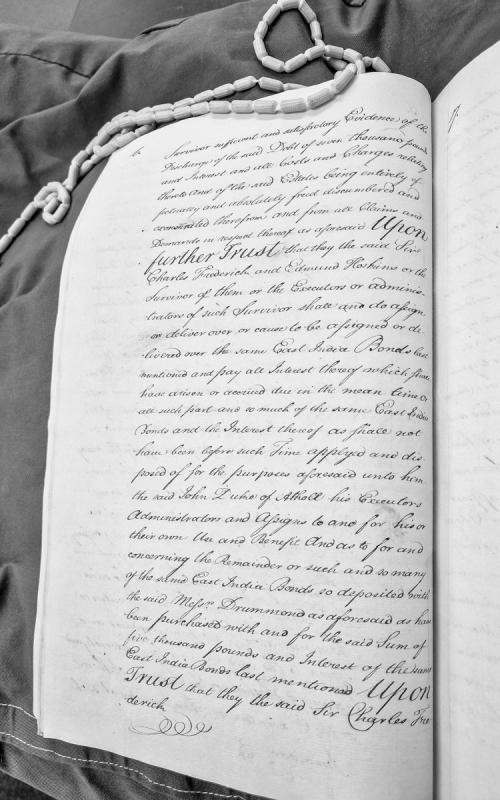 Survivor sufficient and satisfactory Evidence of the
Discharge of the said Debt of seven thousand pounds
and Interest and all Costs and Charges relating
thereto And of the said Estates being entirely ef
fectually and absolutely freed disencumbered and
exonerated therefrom and from all Claims and
Demands in respect thereof as aforesaid Upon
further Trust that they the said Sir
Charles Frederick and Edmund Hoskins or the
Survivor of them or the Executors or adminis-
trators of such Survivor shall and do assign
or deliver over or cause to be assigned or de
-livered over the same East India Bonds last
mentioned and pay all Interest thereof which shall
have arisen or accrued due in the mean time or
all such part and so much of the same East India
Bonds and the Interest thereof as shall not
have been before such Time applyed and dis-
posed of for the purposes aforesaid unto him
the said John Duke of Atholl his Executors
Administrators and Assigns to and for his or
their own Use and Benefit And as to for and
concerning the Remainder or such and so many
of the same East India Bonds so deposited with
the said Messrs Drummond as aforesaid as have
been purchased with and for the said Sum of
five thousand pounds and Interest of the same
East India Bonds last mentioned Upon
Trust that they the said Sir Charles Fre
derick